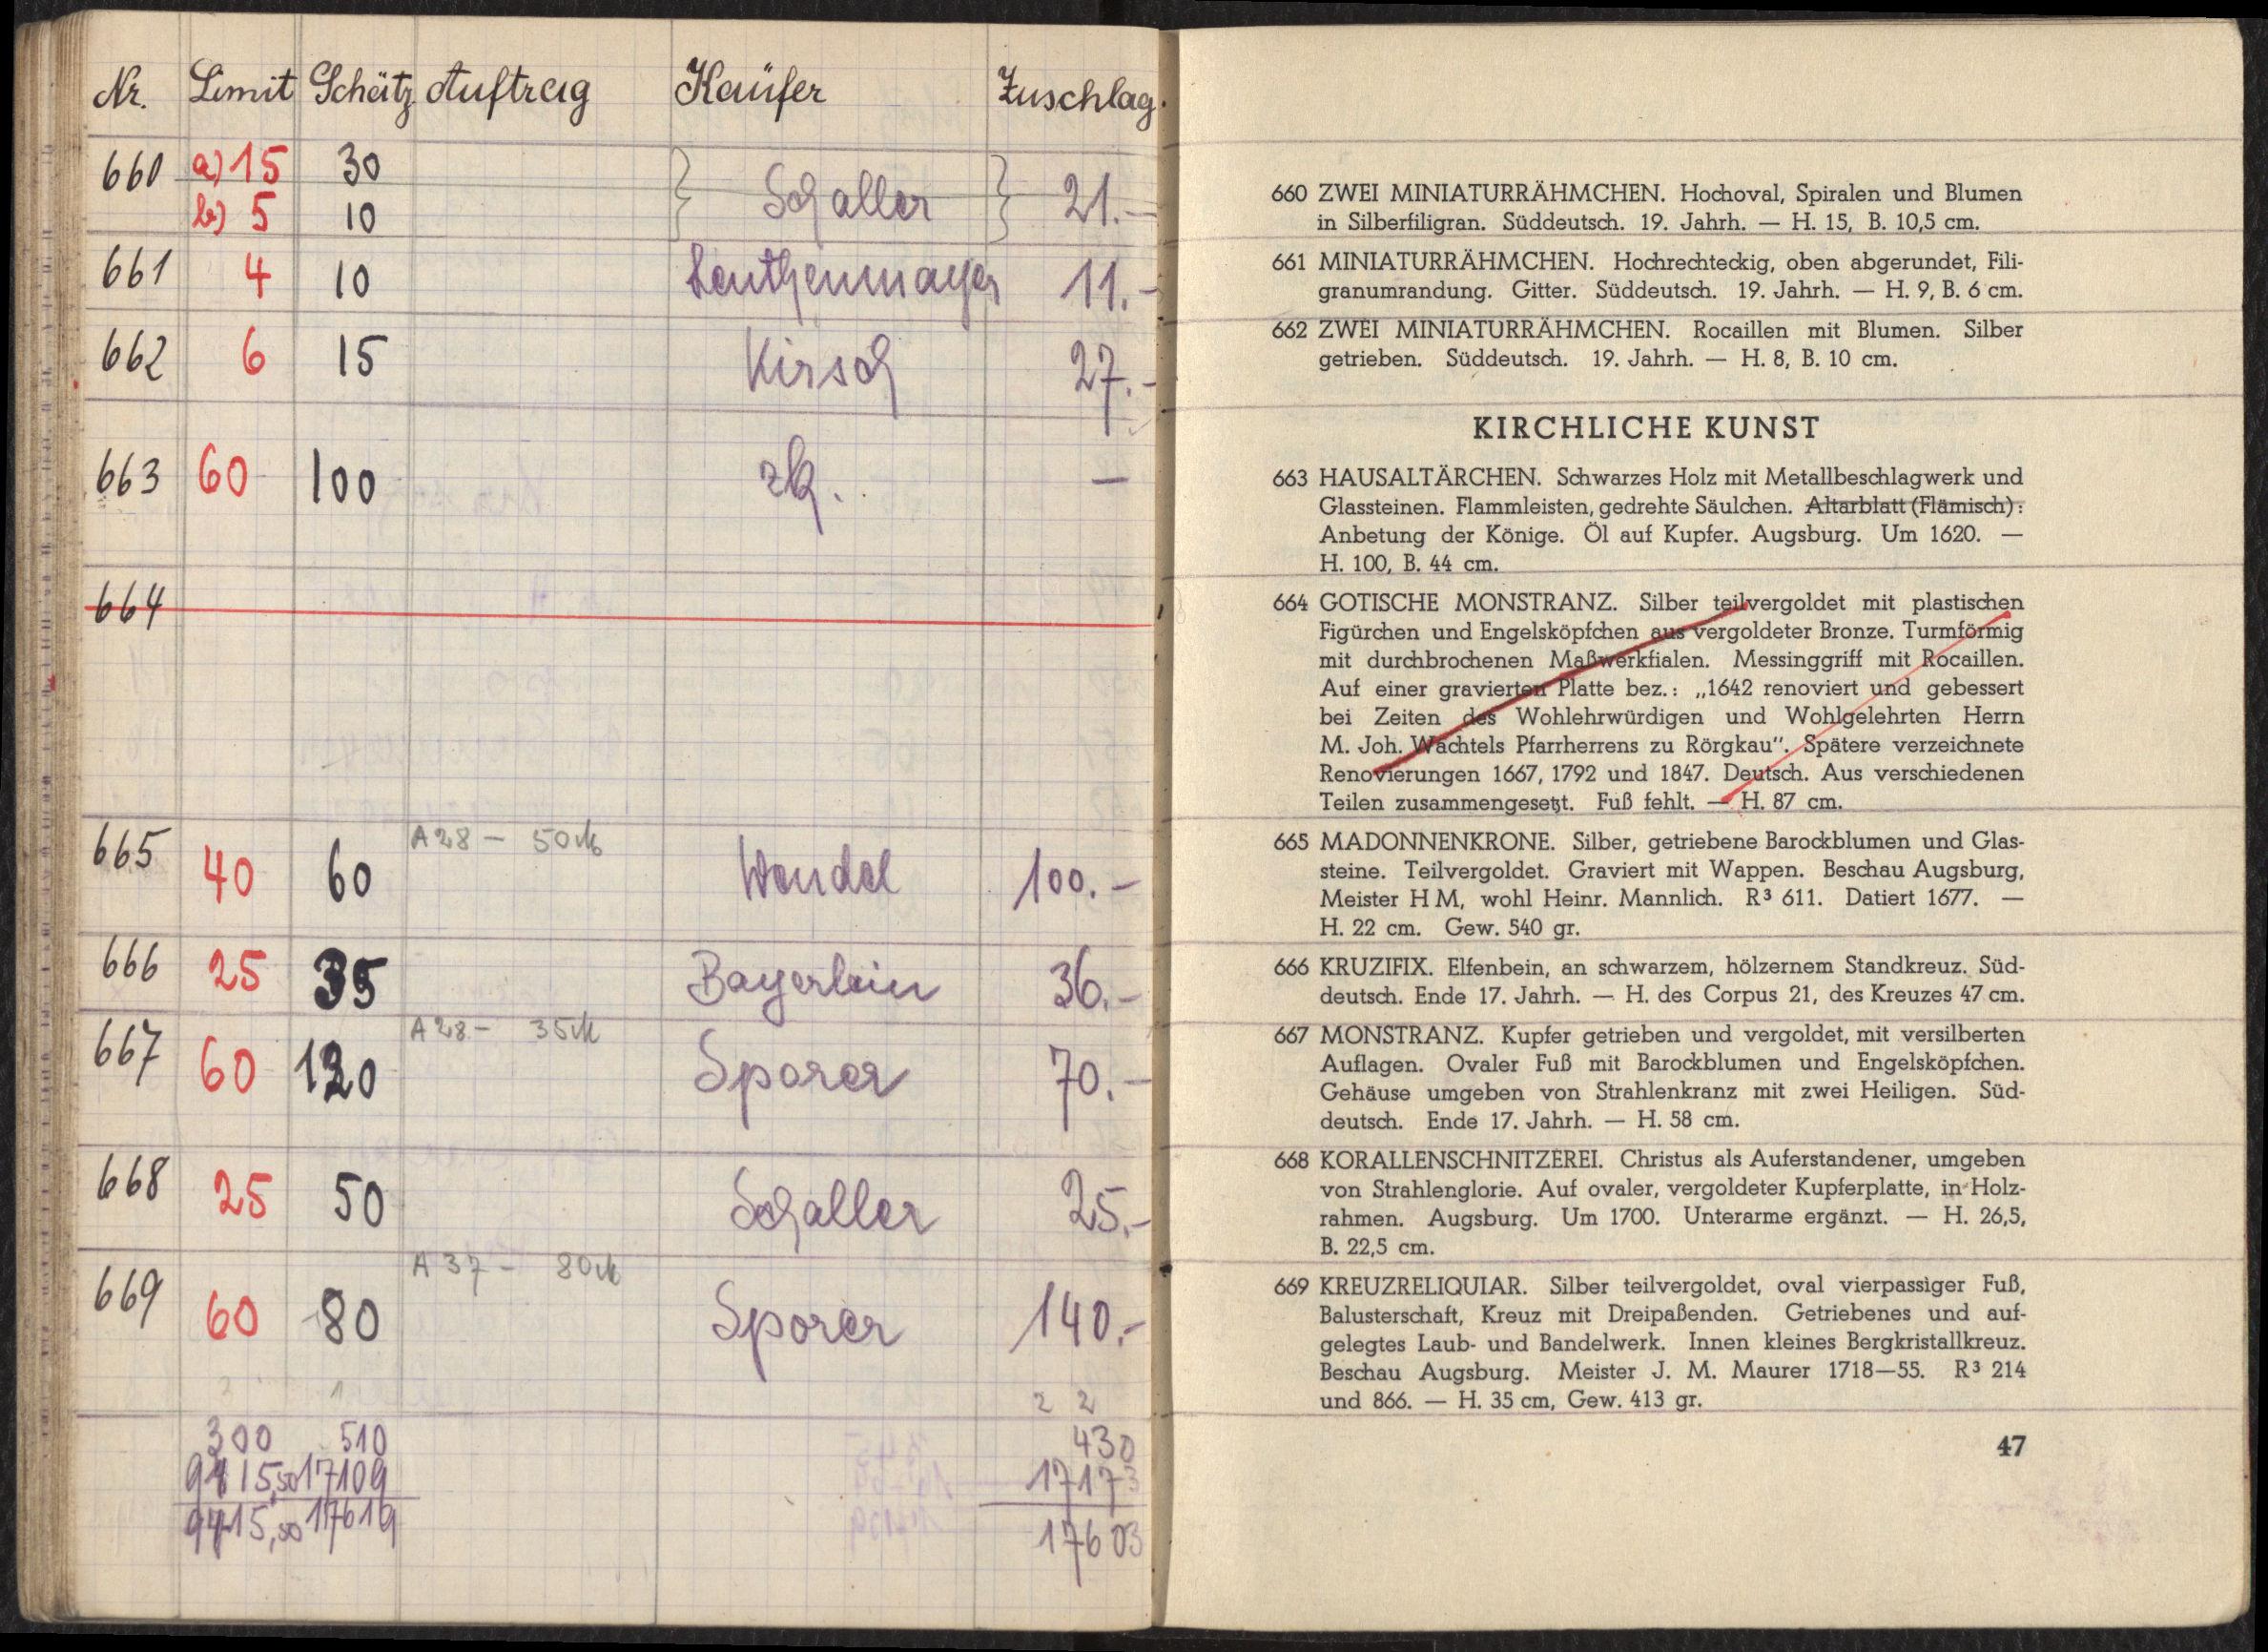 Nr. Limit Schätz. Auftrag Käufer Zuschlag.
660 a) 15 30 } Schaller } 21.-
b) 5 10
661 4 10 Leuthenmayer 11.-
662 6 15 Kirsch 27.-
663 60 100 zk. —
664
A 28 — 50 M
665 40 60 Wendel 100.-
666 25 35 Bayerlein 36.-
A 28 — 35 M
667 60 120 Sporer 70.-
668 25 50 Schaller 25.-
A 37 — 80 M
669 60 80 Sporer 140.-
2 2
300 510 430
9115,50 17109 17173
9415,50 17619 17603
660 ZWEI MINIATURRÄHMCHEN. Hochoval, Spiralen und Blumen
in Silberfiligran. Süddeutsch. 19. Jahrh. — H. 15, B. 10,5 cm.
661 MINIATURRÄHMCHEN. Hochrechteckig, oben abgerundet, Fili-
granumrandung. Gitter. Süddeutsch. 19. Jahrh. — H. 9, B. 6 cm.
662 ZWEI MINIATURRÄHMCHEN. Rocaillen mit Blumen. Silber
getrieben. Süddeutsch. 19. Jahrh. — H. 8, B. 10 cm.
KIRCHLICHE KUNST
663 HAUSALTÄRCHEN. Schwarzes Holz mit Metallbeschlagwerk und
Glassteinen. Flammleisten, gedrehte Säulchen. Altarblatt (Flämisch):
Anbetung der Könige. Öl auf Kupfer. Augsburg. Um 1620. —
H. 100, B. 44 cm.
664 GOTISCHE MONSTRANZ. Silber teilvergoldet mit plastischen
Figürchen und Engelsköpfchen aus vergoldeter Bronze. Turmförmig
mit durchbrochenen Maßwerkfialen. Messinggriff mit Rocaillen.
Auf einer gravierten Platte bez.: „1642 renoviert und gebessert
bei Zeiten des Wohlehrwürdigen und Wohlgelehrten Herrn
M. Joh. Wächtels Pfarrherrens zu Rörgkau". Spätere verzeichnete
Renovierungen 1667, 1792 und 1847. Deutsch. Aus verschiedenen
Teilen zusammengesetzt. Fuß fehlt. — H. 87 cm.
665 MADONNENKRONE. Silber, getriebene Barockblumen und Glas-
steine. Teilvergoldet. Graviert mit Wappen. Beschau Augsburg,
Meister H M, wohl Heinr. Mannlich. R³ 611. Datiert 1677. —
H. 22 cm. Gew. 540 gr.
666 KRUZIFIX. Elfenbein, an schwarzem, hölzernem Standkreuz. Süd-
deutsch. Ende 17. Jahrh. — H. des Corpus 21, des Kreuzes 47 cm.
667 MONSTRANZ. Kupfer getrieben und vergoldet, mit versilberten
Auflagen. Ovaler Fuß mit Barockblumen und Engelsköpfchen.
Gehäuse umgeben von Strahlenkranz mit zwei Heiligen. Süd-
deutsch. Ende 17. Jahrh. — H. 58 cm.
668 KORALLENSCHNITZEREI. Christus als Auferstandener, umgeben
von Strahlenglorie. Auf ovaler, vergoldeter Kupferplatte, in Holz-
rahmen. Augsburg. Um 1700. Unterarme ergänzt. — H. 26,5,
B. 22,5 cm.
669 KREUZRELIQUIAR. Silber teilvergoldet, oval vierpassiger Fuß,
Balusterschaft, Kreuz mit Dreipaßenden. Getriebenes und auf-
gelegtes Laub- und Bandelwerk. Innen kleines Bergkristallkreuz.
Beschau Augsburg. Meister J. M. Maurer 1718—55. R³ 214
und 866. — H. 35 cm, Gew. 413 gr.
47